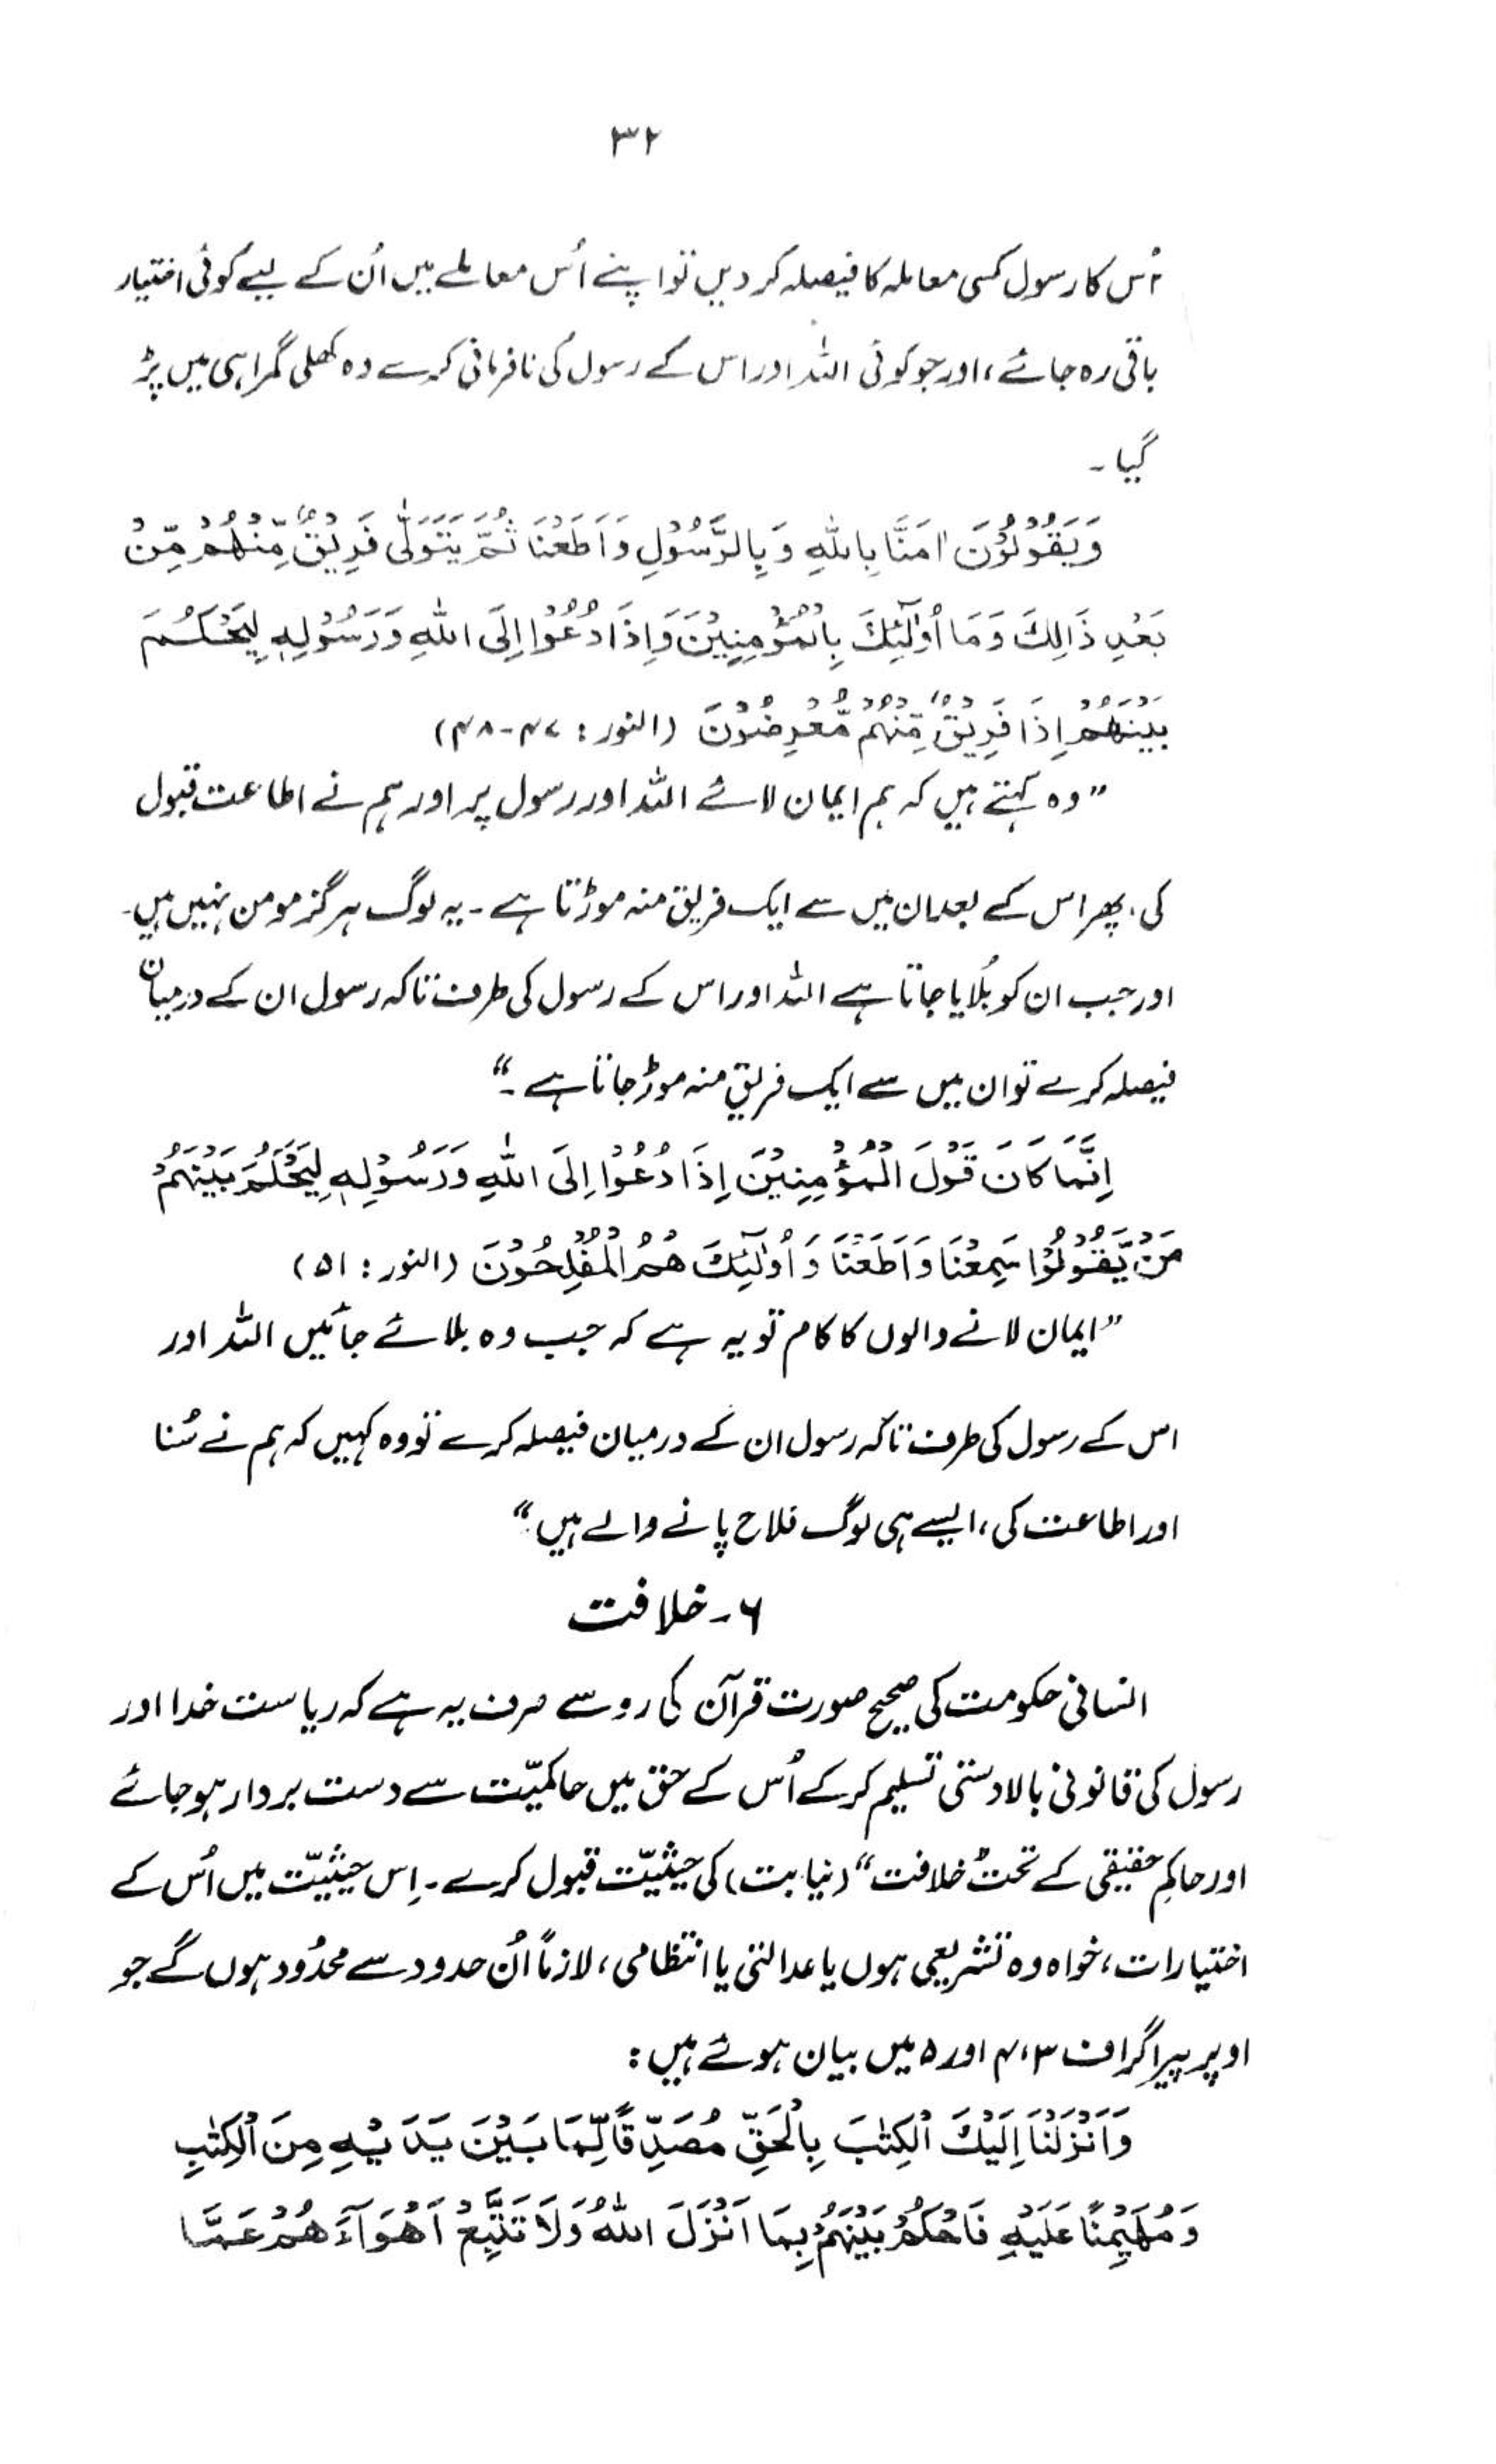 ۳۲
اُس کا رسول کسی معاملہ کا فیصلہ کر دیں تو اپنے اُس معاملے میں اُن کے لیے کوئی اختیار
باقی رہ جائے، اور جو کوئی اللہ اور اس کے رسول کی نافرمانی کرے وہ کھلی گمراہی میں پڑ
گیا۔
وَيَقُوْلُوْنَ اٰمَنَّا بِاللّٰهِ وَبِالرَّسُوْلِ وَاَطَعْنَا ثُمَّ يَتَوَلّٰى فَرِيْقٌ مِّنْهُمْ مِّنْ
بَعْدِ ذَالِكَ وَمَا اُولٰٓئِكَ بِالْمُؤْمِنِيْنَ وَاِذَا دُعُوْا اِلَى اللّٰهِ وَرَسُوْلِهٖ لِيَحْكُمَ
بَيْنَهُمْ اِذَا فَرِيْقٌ مِّنْهُمْ مُّعْرِضُوْنَ (النور: ۴۷-۴۸)
”وہ کہتے ہیں کہ ہم ایمان لائے اللہ اور رسول پر اور ہم نے اطاعت قبول
کی، پھر اس کے بعد ان میں سے ایک فریق منہ موڑتا ہے۔ یہ لوگ ہرگز مومن نہیں ہیں۔
اور جب ان کو بُلایا جاتا ہے اللہ اور اس کے رسول کی طرف تاکہ رسول ان کے درمیان
فیصلہ کرے تو ان میں سے ایک فریق منہ موڑ جاتا ہے۔“
اِنَّمَا كَانَ قَوْلَ الْمُؤْمِنِيْنَ اِذَا دُعُوْا اِلَى اللّٰهِ وَرَسُوْلِهٖ لِيَحْكُمَ بَيْنَهُمْ
مَنْ يَّقُوْلُوْا سَمِعْنَا وَاَطَعْنَا وَاُولٰٓئِكَ هُمُ الْمُفْلِحُوْنَ (النور: ۵۱)
”ایمان لانے والوں کا کام تو یہ ہے کہ جب وہ بلائے جائیں اللہ اور
اس کے رسول کی طرف تاکہ رسول ان کے درمیان فیصلہ کرے تو وہ کہیں کہ ہم نے سُنا
اور اطاعت کی، ایسے ہی لوگ فلاح پانے والے ہیں“
۶۔ خلافت
انسانی حکومت کی صحیح صورت قرآن کی رو سے صرف یہ ہے کہ ریاست خدا اور
رسول کی قانونی بالادستی تسلیم کر کے اُس کے حق میں حاکمیّت سے دست بردار ہو جائے
اور حاکمِ حقیقی کے تحت ”خلافت“ (نیابت) کی حیثیّت قبول کرے۔ اِس حیثیّت میں اُس کے
اختیارات، خواہ وہ تشریعی ہوں یا عدالتی یا انتظامی، لازماً اُن حدود سے محدُود ہوں گے جو
اوپر پیراگراف ۳، ۴ اور ۵ میں بیان ہوئے ہیں:
وَاَنْزَلْنَا اِلَيْكَ الْكِتٰبَ بِالْحَقِّ مُصَدِّقًا لِّمَا بَيْنَ يَدَيْهِ مِنَ الْكِتٰبِ
وَمُهَيْمِنًا عَلَيْهِ فَاحْكُمْ بَيْنَهُمْ بِمَا اَنْزَلَ اللّٰهُ وَلَا تَتَّبِعْ اَهْوَآءَهُمْ عَمَّا